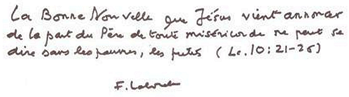 La Bonne Nouvelle que Jésus vient annoncer
de la part du Père de toute miséricorde ne peut se
dire sans les pauvres, les petits (Lc. 10: 21-26)
F.